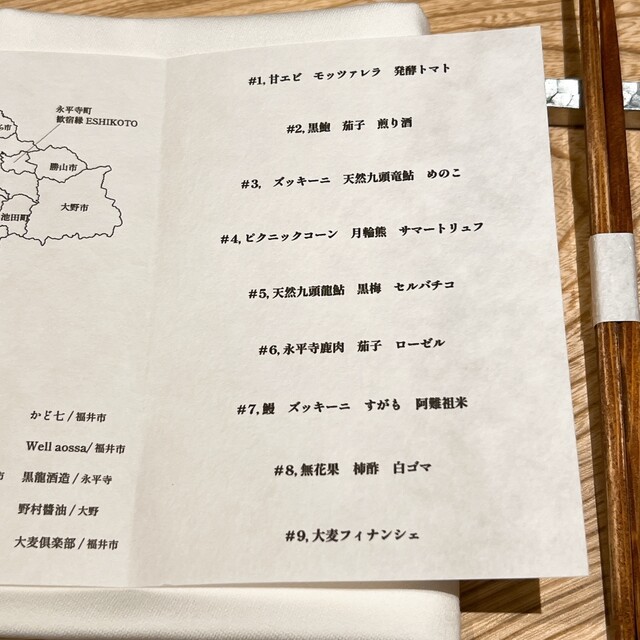 永平寺町
歓宿縁 ESHIKOTO
市
勝山市
大野市
池田町
かど七 / 福井市
Well aossa/ 福井市
市 黒龍酒造 / 永平寺
野村醬油 / 大野
大麦倶楽部 / 福井市
#1, 甘エビ モッツァレラ 発酵トマト
#2, 黒鮑 茄子 煎り酒
#3, ズッキーニ 天然九頭竜鮎 めのこ
#4, ピクニックコーン 月輪熊 サマートリュフ
#5, 天然九頭龍鮎 黒梅 セルバチコ
#6, 永平寺鹿肉 茄子 ローゼル
#7, 鰻 ズッキーニ すがも 阿難祖米
#8, 無花果 柿酢 白ゴマ
#9, 大麦フィナンシェ